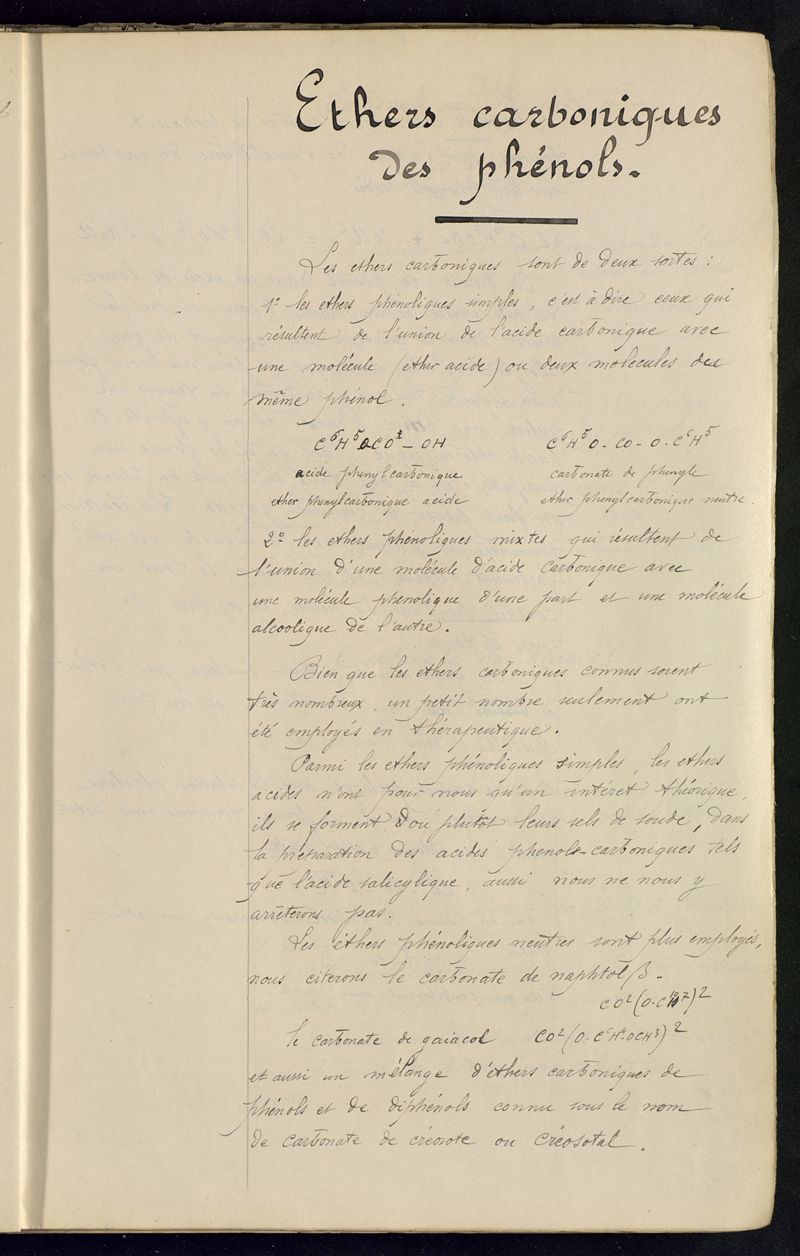 Ethers carboniques
des phénols.
Les ethers carboniques sont de deux sortes :
1º les ethers phénoliques simples, c'est à dire ceux qui
résultent de l'union de l'acide carbonique avec
une molécule (ether acide) ou deux molecules des
même phénol.
C⁶H⁵OCO² - OH C⁶H⁵O - CO - O - C⁶H⁵
acide phenylcarbonique carbonate de phenyle
ether phenylcarbonique acide ether phenylcarbonique neutre.
2º les ethers phénoliques mixtes qui résultent de
l'union d'une molécule d'acide carbonique avec
une molécule phenolique d'une part et une molécule
alcoolique de l'autre.
Bien que les ethers carboniques connus soient
très nombreux, un petit nombre seulement ont
été employés en thérapeutique.
Parmi les ethers phénoliques simples, les ethers
acides n'ont pour nous qu'un intéret théorique,
ils se forment ou plutôt leurs sels de soude, dans
la préparation des acides phenols-carboniques tels
que l'acide salicylique, aussi nous ne nous y
arrêterons pas.
Les éthers phénoliques neutres sont plus employés,
nous citerons le carbonate de naphtol β.
CO²(O-C¹⁰H⁷)²
le carbonate de gaiacol CO²(O-C⁶H⁴-OCH³)²
et aussi un mélange d'éthers carboniques de
phénols et de diphénols connu sous le nom
de carbonate de créosote ou Créosotal.